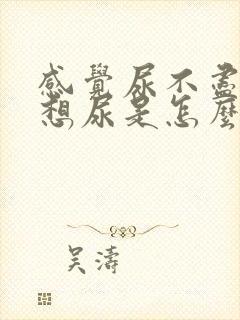 感覺尿不盡
想尿是怎麼
吳濤